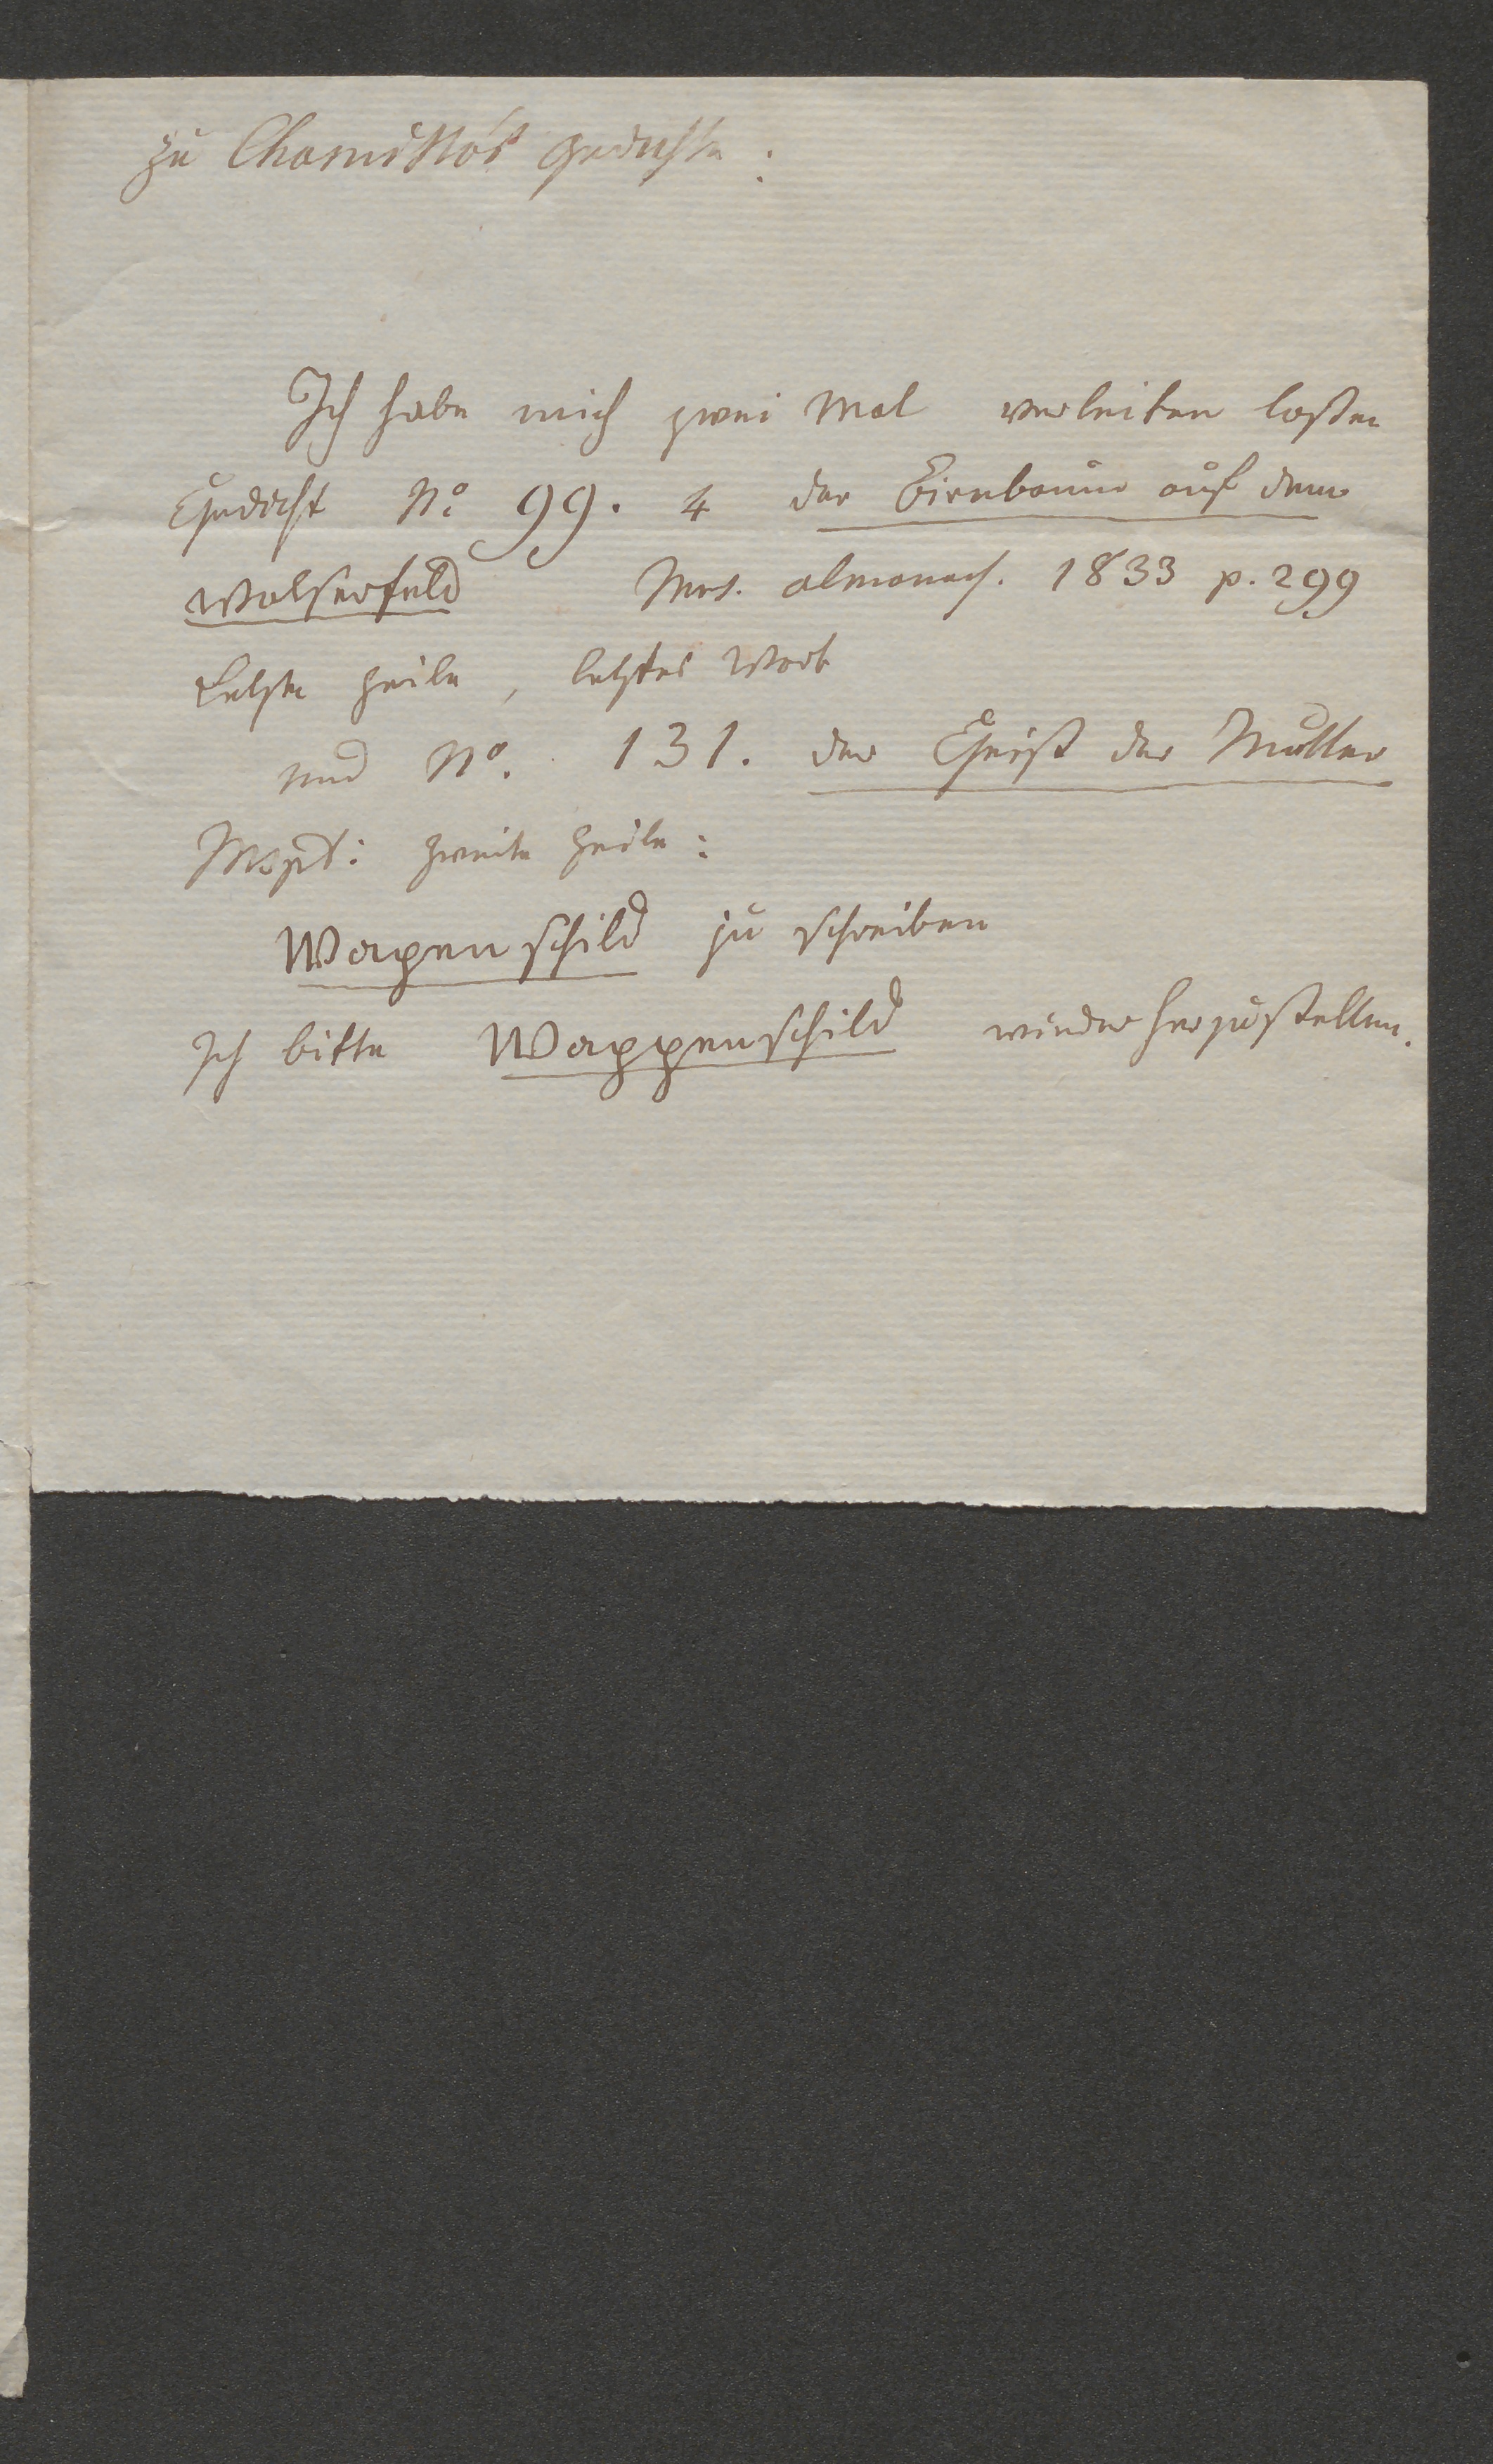 zu Chamisso's gedichte:
Ich habe mich zwei Mal verleiten lassen
Gedicht No 99. 4 der Birnbaum auf dem
Walserfeld Mus. almanach. 1833 p. 299
Letzte Zeile, letztes Wort
und No. 131. der Geist der Mutter
Mspt: zweite Zeile:
Wapenschild zu schreiben
Ich bitte Wappenschild wieder herzustellen.